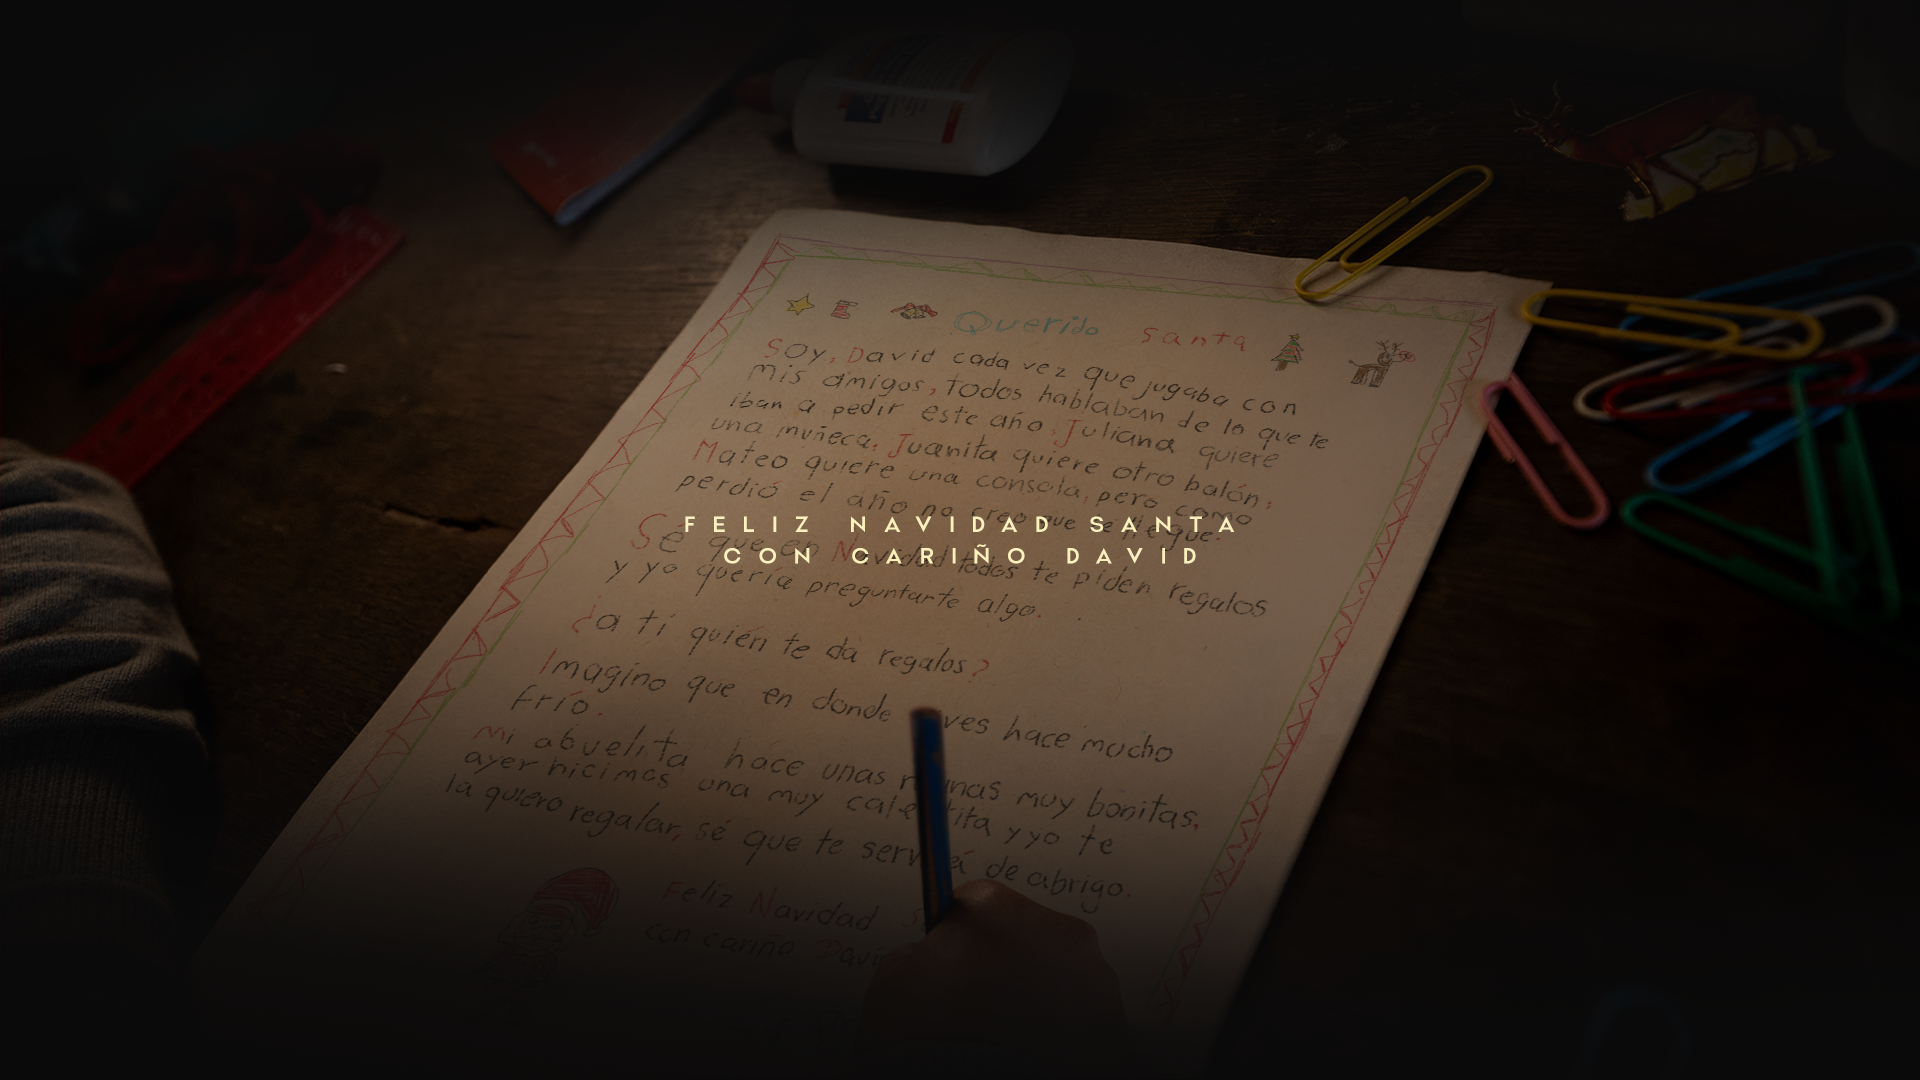 Querido Santa
Soy, David cada vez que jugaba con
mis amigos, todos hablaban de lo que te
iban a pedir este año, Juliana quiere
una muñeca, Juanita quiere otro balón,
Mateo quiere una consola, pero como
perdió el año no creo que le llegue.
FELIZ NAVIDAD SANTA
CON CARIÑO DAVID
Sé que en Navidad todos te piden regalos
y yo quería preguntarte algo.
¿a ti quién te da regalos?
Imagino que en donde ves hace mucho
Frío.
mi abuelita hace unas muy bonitas,
ayer hicimos una muy y yo te
la quiero regalar, sé que te de abrigo.
Feliz Navidad
con cariño David